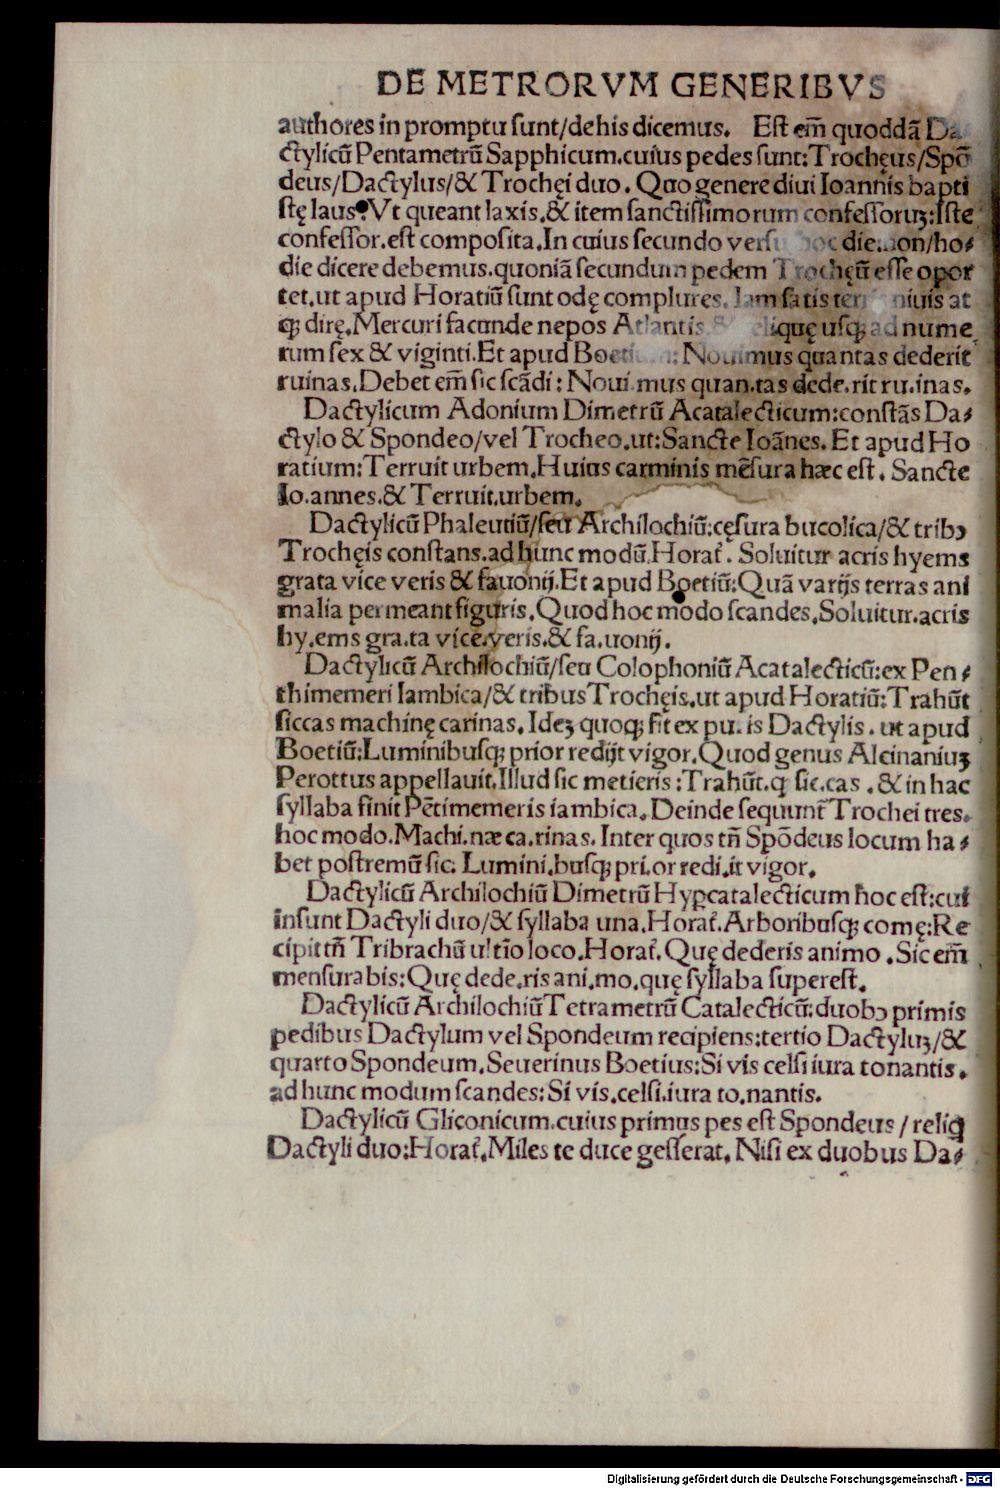 DE METRORVM GENERIBVS
authores in promptu sunt/de his dicemus. Est em̄ quoddã Da
ctylicũ Pentametrũ Sapphicum.cuius pedes sunt:Trochęus/Spõ
deus/Dactylus/& Trochęi duo. Quo genere diui Ioannis bapti
stę laus:Vt queant laxis.& item sanctissimorum confessoruꝫ:Iste
confessor.est composita.In cuius secundo versu hoc die.non/ho⸗
die dicere debemus.quoniã secundum pedem Trochęũ esse opor
tet.ut apud Horatiũ sunt odę complures. Iam satis terr niuis at
qꝫ dirę.Mercuri facunde nepos Atlantis & reliquę usqꝫ ad nume
rum sex & viginti.Et apud Boetium: Nouimus quantas dederit
ruinas.Debet em̄ sic scãdi: Noui.mus quan.tas dede.rit ru.inas.
Dactylicum Adonium Dimetrũ Acatalecticum:constãs Da⸗
ctylo & Spondeo/vel Trocheo.ut:Sancte Ioãnes. Et apud Ho
ratium:Terruit urbem.Huius carminis mẽsura hæc est. Sancte
Io.annes.& Terruit.urbem.
Dactylicũ Phaleutiũ/seu Archilochiũ:cęsura bucolica/& tribꝰ
Trochęis constans.ad hunc modũ.Horat̃. Soluitur acris hyems
grata vice veris & fauonij.Et apud Boetiũ:Quã varijs terras ani
malia permeant figuris.Quod hoc modo scandes.Soluitur.acris
hy.ems gra.ta vice.veris.& fa.uonij.
Dactylicũ Archilochiũ/seu Colophoniũ Acatalecticũ:ex Pen⸗
thimemeri Iambica/& tribus Trochęis.ut apud Horatiũ:Trahũt
siccas machinę carinas. Ideꝫ quoqꝫ fit ex puris Dactylis. ut apud
Boetiũ:Luminibusqꝫ prior redijt vigor.Quod genus Alcinaniuꝫ
Perottus appellauit.Illud sic metieris:Trahũt.q̨ sic.cas .& in hac
syllaba finit Pẽtimemeris iambica. Deinde sequunt̃ Trochei tres.
hoc modo.Machi.næ ca.rinas. Inter quos tñ Spõdeus locum ha⸗
bet postremũ sic. Lumini.busqꝫ pri.or redi.it vigor.
Dactylicũ Archilochiũ Dimetrũ Hyꝑcatalecticum hoc est:cui
insunt Dactyli duo/& syllaba una.Horat̃.Arboribusqꝫ comę:Re
cipit tñ Tribrachũ ultĩo loco.Horat̃.Quę dederis animo .Sic em̄
mensurabis:Quę dede.ris ani.mo.quę syllaba superest.
Dactylicũ Archilochiũ Tetrametrũ Catalecticũ:duobꝰ primis
pedibus Dactylum vel Spondeum recipiens:tertio Dactyluꝫ/&
quarto Spondeum.Seuerinus Boetius:Si vis celsi iura tonantis.
ad hunc modum scandes:Si vis.celsi.iura to.nantis.
Dactylicũ Gliconicum.cuius primus pes est Spondeus / reliq̨
Dactyli duo:Horat̃.Miles te duce gesserat. Nisi ex duobus Da⸗
Digitalisierung gefördert durch die Deutsche Forschungsgemeinschaft - DFG